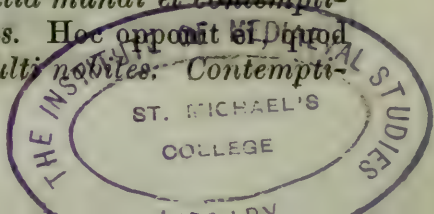 mundi et contempti-
s. Hoc opponit ei, quod
ulti nobiles: Contempti-
THE INSTITUTE OF MEDIEVAL STUDIES
ST. MICHAEL'S
COLLEGE
LIBRARY